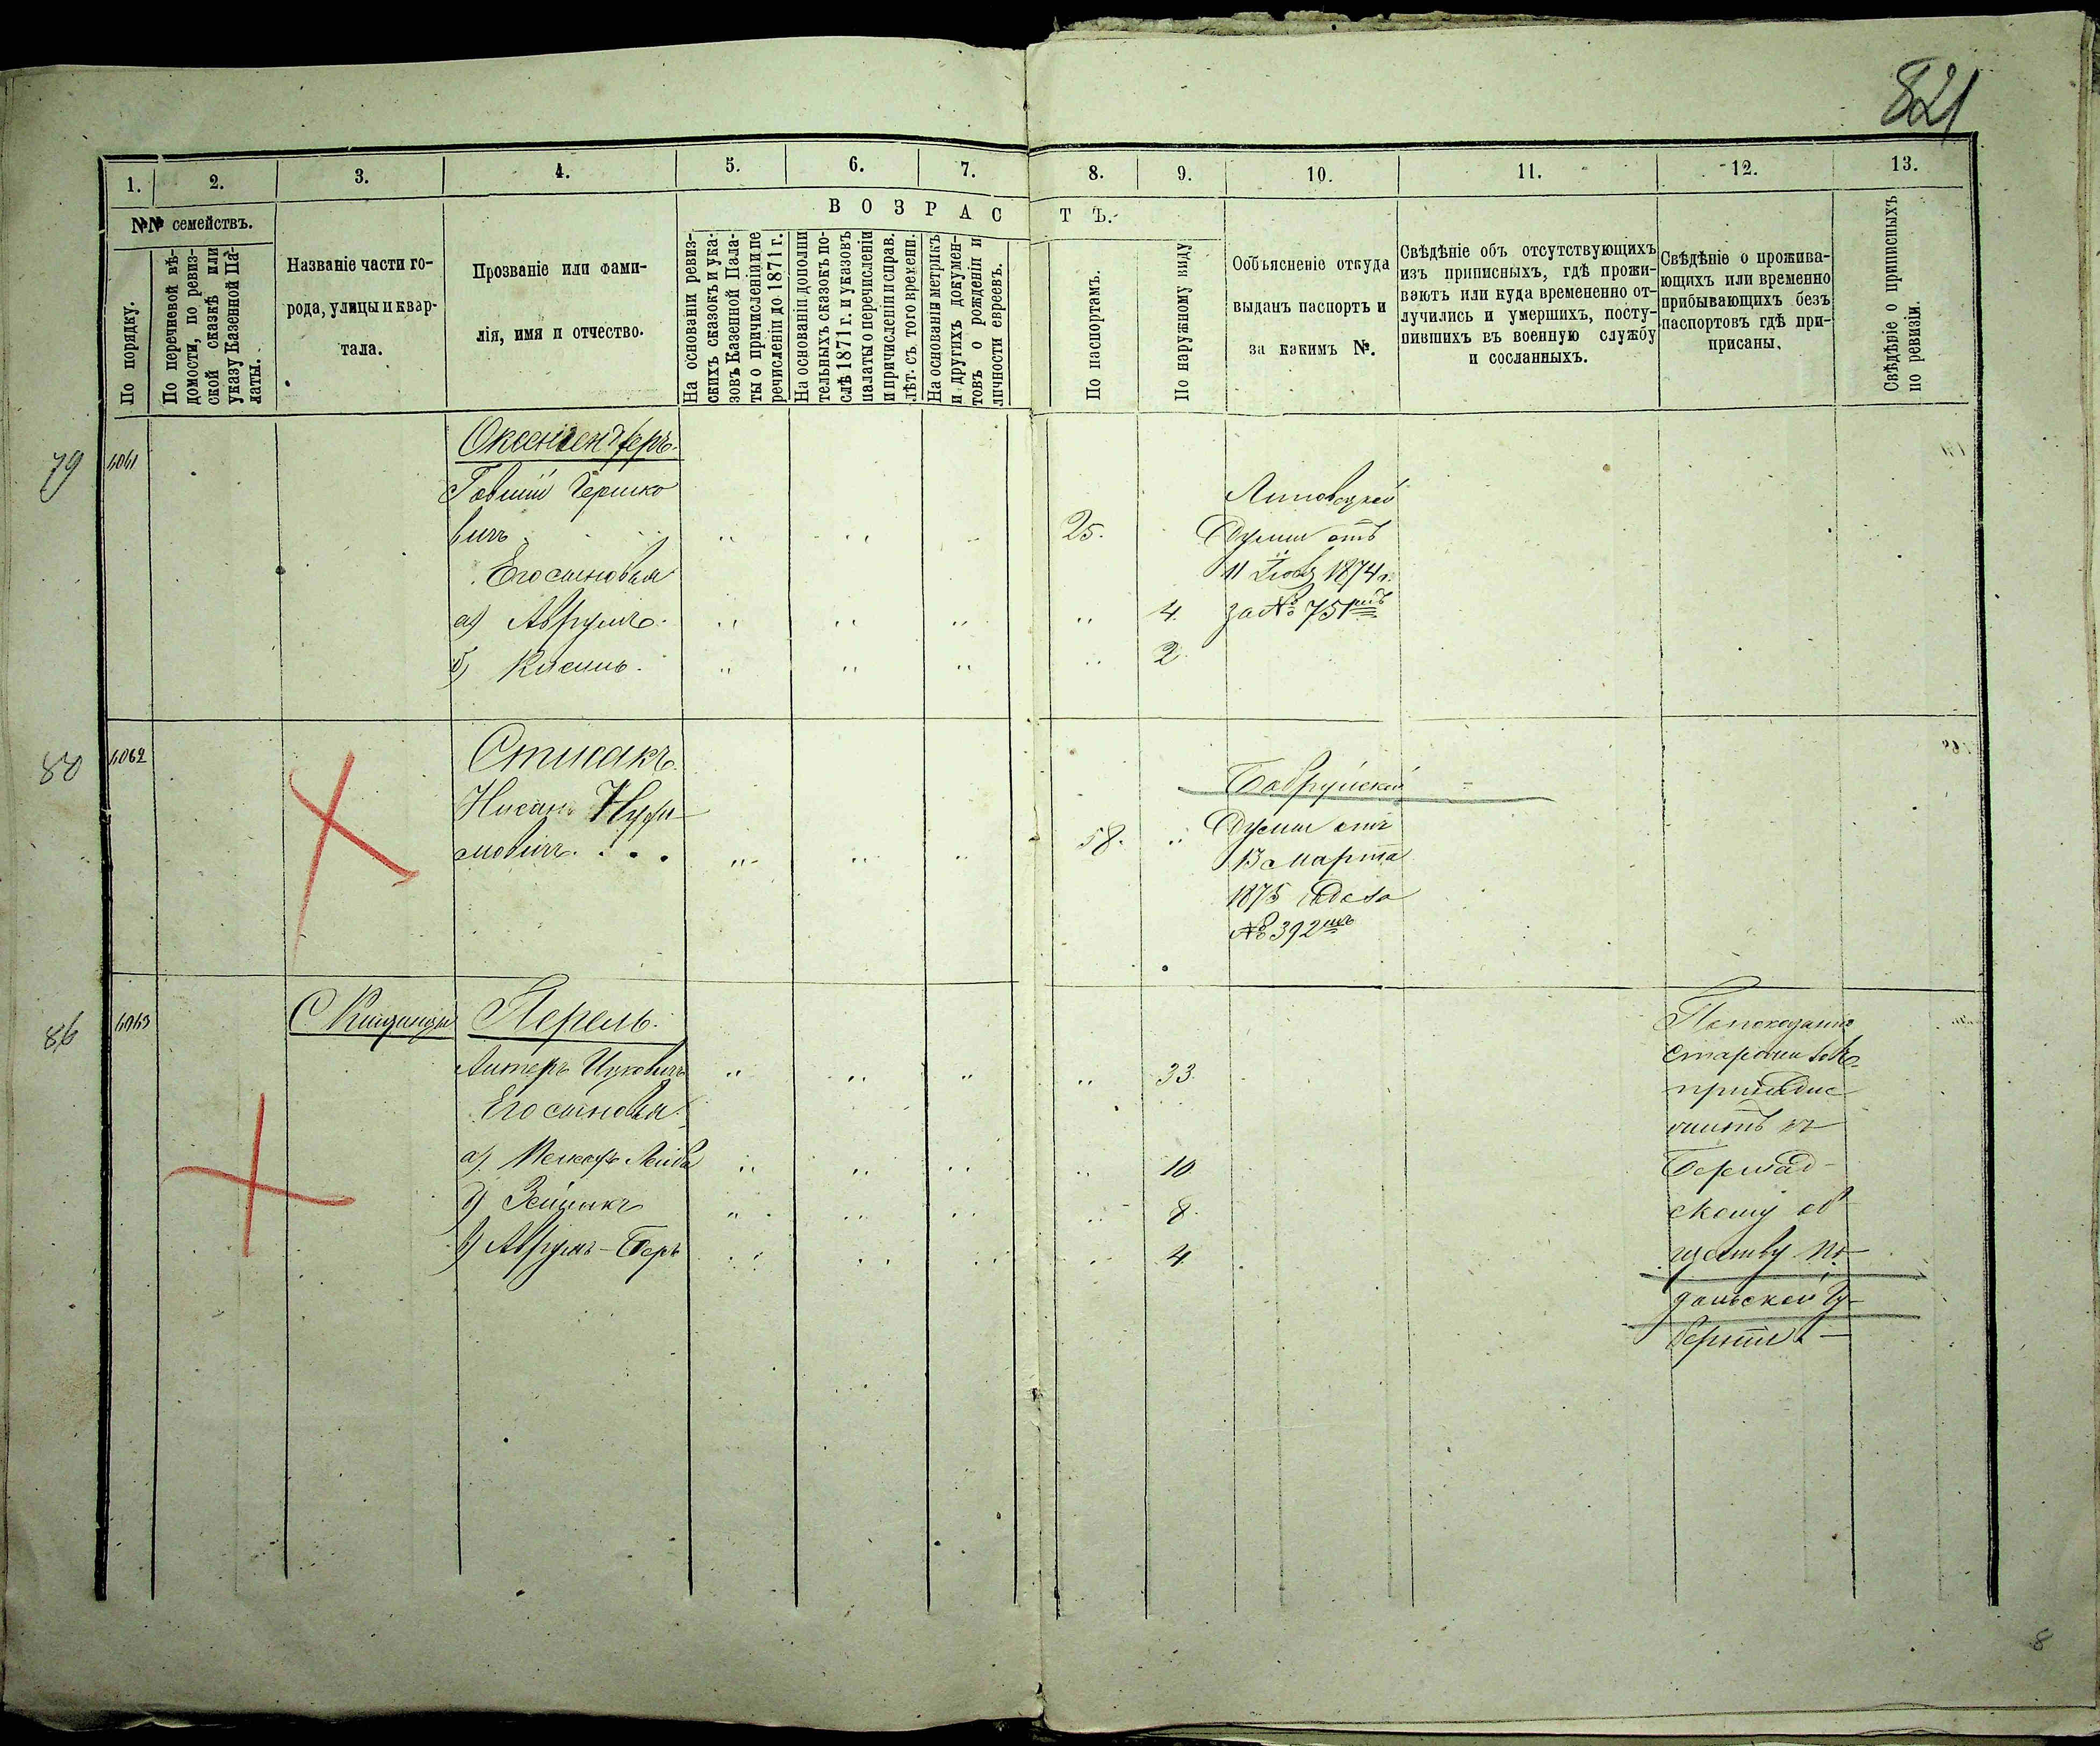 821
1. 2. 3. 4. 5. 6. 7. 8. 9. 10. 11. 12. 13.
№№ семействъ.
В О З Р А С Т Ъ.
По порядку.
По перечневой вѣ-
домости, по ревиз-
ской сказкѣ или
указу Казенной Па-
латы.
Названіе части го-
рода, улицы и квар-
тала.
Прозваніе или фами-
лія, имя и отчество.
На основаніи ревиз-
скихъ сказокъ и ука-
зовъ Казенной Пала-
ты о причисленіи и пе
речисленіи до 1871 г.
На основаніи дополни
тельныхъ сказокъ по-
слѣ 1871 г. и указовъ
палаты о перечисленіи
и причисленіи и справ.
лѣт. съ того времени.
На основаніи метрикъ
и другихъ докумен-
товъ о рожденіи и
личности евреевъ.
По паспортамъ.
По наружному виду
Ообъясненіе откуда
выданъ паспортъ и
за какимъ №.
Свѣдѣніе объ отсутствующихъ
изъ приписныхъ, гдѣ прожи-
ваютъ или куда времененно от-
лучились и умершихъ, посту-
пившихъ въ военную службу
и сосланныхъ.
Свѣдѣніе о прожива-
ющихъ или временно
прибывающихъ безъ
паспортовъ гдѣ при-
писаны.
Свѣдѣніе о приписныхъ
по ревизіи.
79
Оксенгендлеръ.
Гершко
вичъ
25.
Липовецкой
Думы отъ
Его сыновья
11 1874 г.
а) Аврумъ. 4.
за № 751мъ
б) 2.
80 4062
Спивакъ.
Нисанъ
мовичъ. 58.
Бобруйской
Думы отъ
13 Марта
1875 года за
№ 392мъ
86 4063
Перель.
Ицковичъ 33.
Его сыновья.
а) Лейба 10.
б) 8.
в) Аврумъ-Беръ 4.
По показанію
старосты
принадле
житъ къ
Бершад-
скому об
ществу По-
дольской Гу-
берніи.
8